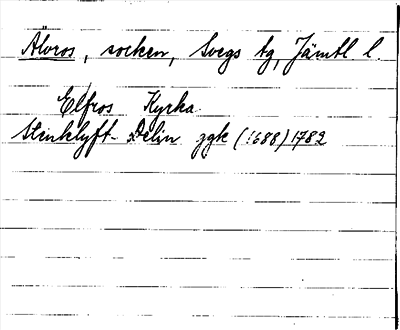 Älvros, socken, Svegs tg, Jämtl l.
Elfros Kyrka
Stenklyft Delin zgk (1688) 1782